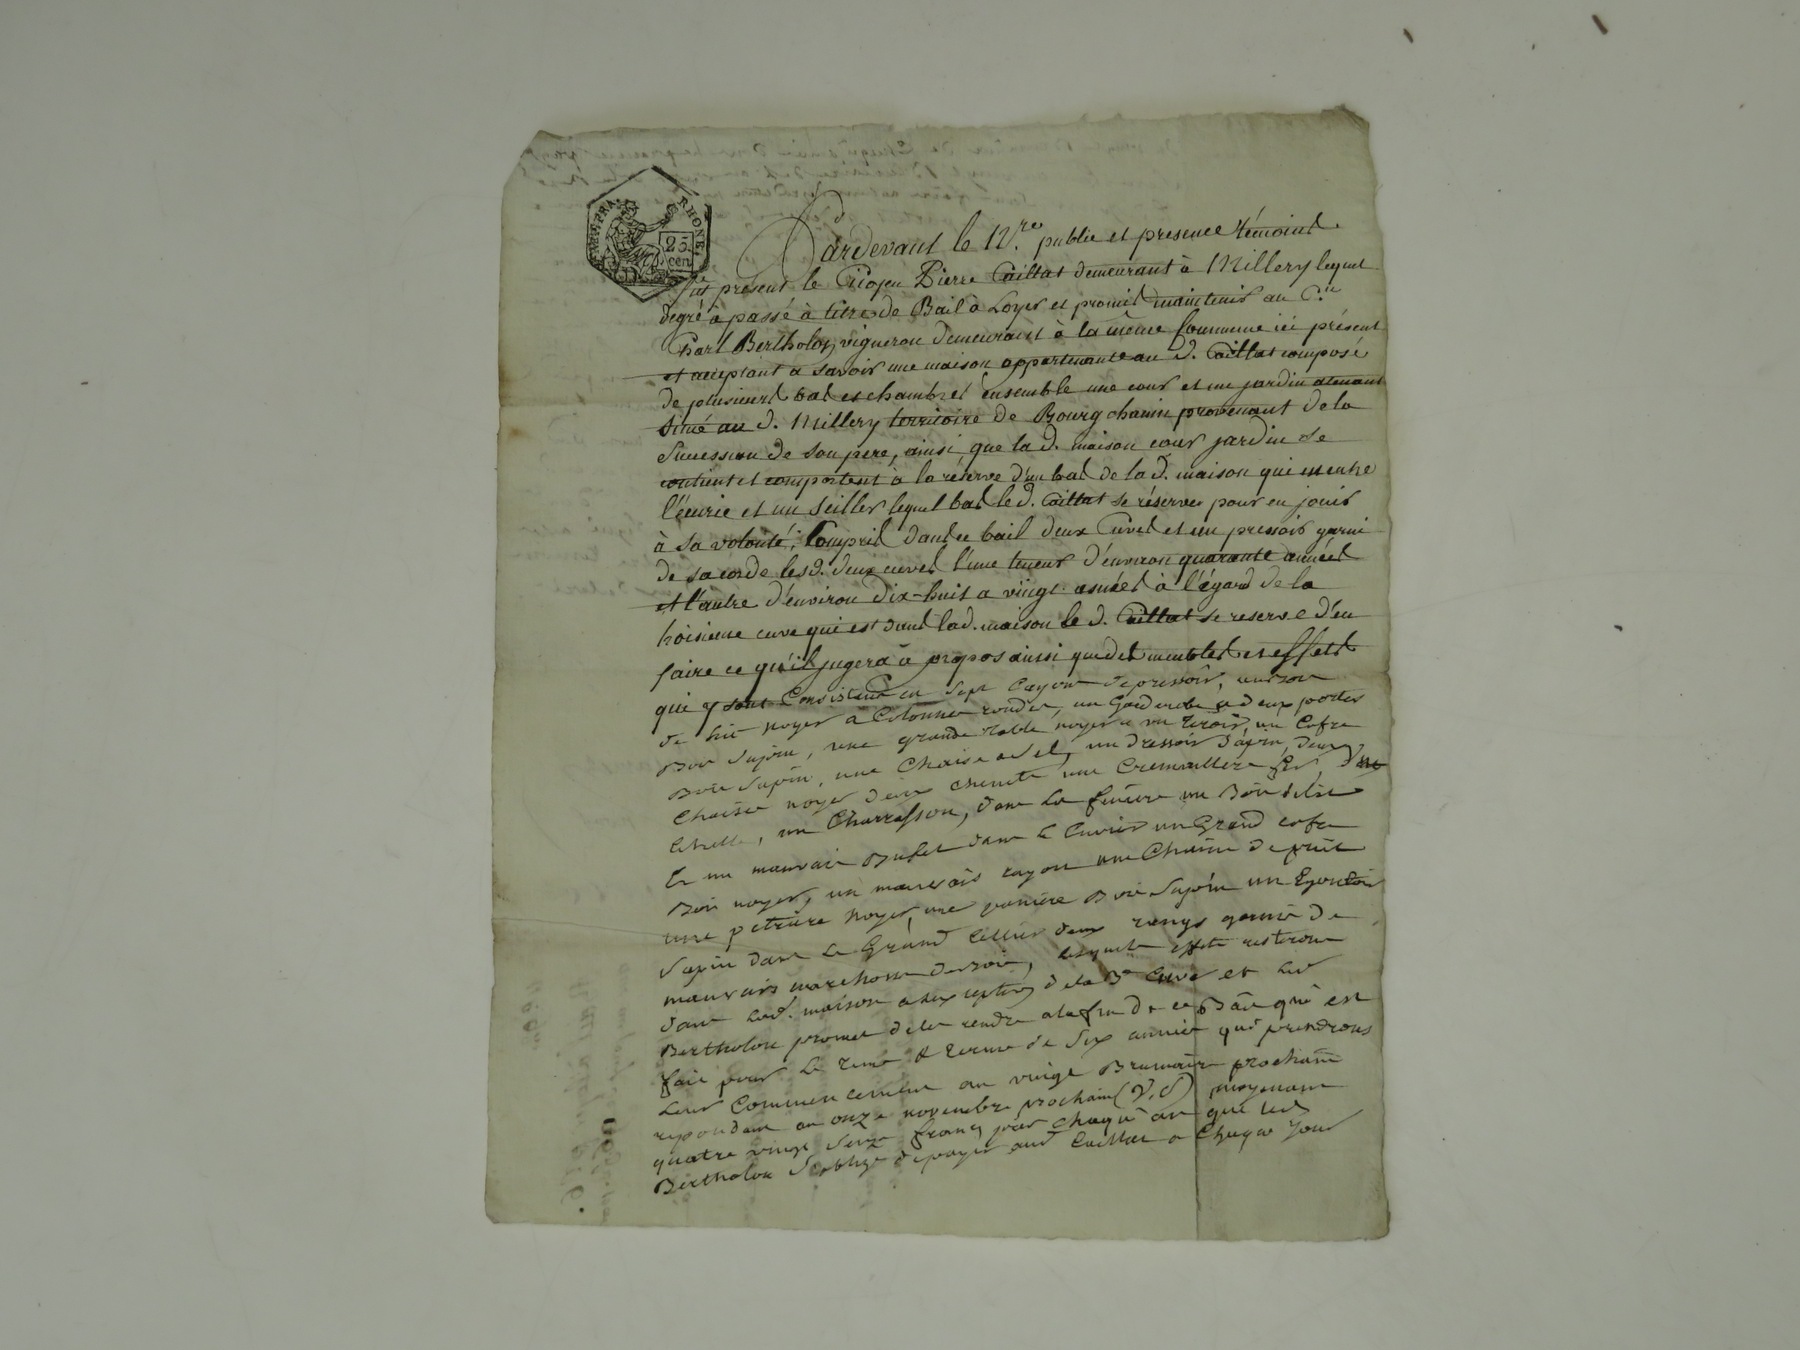 RÉP. FRA.
RHONE.
25
cen
Pardevant le N.re public et presence témoins
fut présent le Citoyen Pierre Caillat demeurant à Millery lequel
degré a passé à titre de Bail à Loyer et promet maintenir au C.en
Charl Bertholon vigneron demeurant à la même Commune ici présent
et acceptant a savoir une maison appartenante au d. Caillat composé
de plusieurs bas et chambres ensemble une cour et un jardin atenant
situé au d. Millery territoire de Bourgchanin provenant de la
Succession de son pere, ainsi que la d. maison cour jardin se
contient et comportent à la réserve d'un bas de la d. maison qui est entre
l'écurie et un Seiller lequel bas le d. Caillat se réserve pour en jouir
à sa volonté, Compris dans ce bail deux Cuves et un pressoir garni
de sa corde lesd. deux cuves l'une teneur d'environ quarante année
et l'autre d'environ dix-huit a vingt asnées à l'égard de la
troisieme cuve qui est dans la d. maison le d. Caillat se reserve d'en
faire ce qu'il jugera à propos ainsi que des meubles et effets
qui y sont Consistant en Sept Cayon de pressoir, un
de lit noyer a Colonne rondes, un Garderobe a deux portes
Bois Sapin, une grande table noyer a un tiroir, un Cofre
Bois Sapin, une Chaise a Sel, un dressoir Sapin, deux
Chaises noyer deux chenets une Cremaillere fer,
un Charasson, dans la
Et un mauvais Bufet dans le Cuvier un Grand cofre
Bois noyer, un mauvais rayon une Chaine de puit
une petriere Noyer, une paniere Bois Sapin un
Sapin dans le Grand Cellier deux rangs garnis de
mauvais marchons de bois, lesquels effets resteront
dans lad. maison a lexception de la 3e Cuve et led
Bertholon promet de les rendre a la fin de ce Bail qui est
fait pour le tems & terme de Six années qui prendrons
Leur Commencement au vingt Brumaire prochain
repondant au onze novembre prochain (V. S) moyenant
quatre vingt Seize francs par chaque an que led
Bertholon S'oblige de payer aud Caillat a Chaque jour